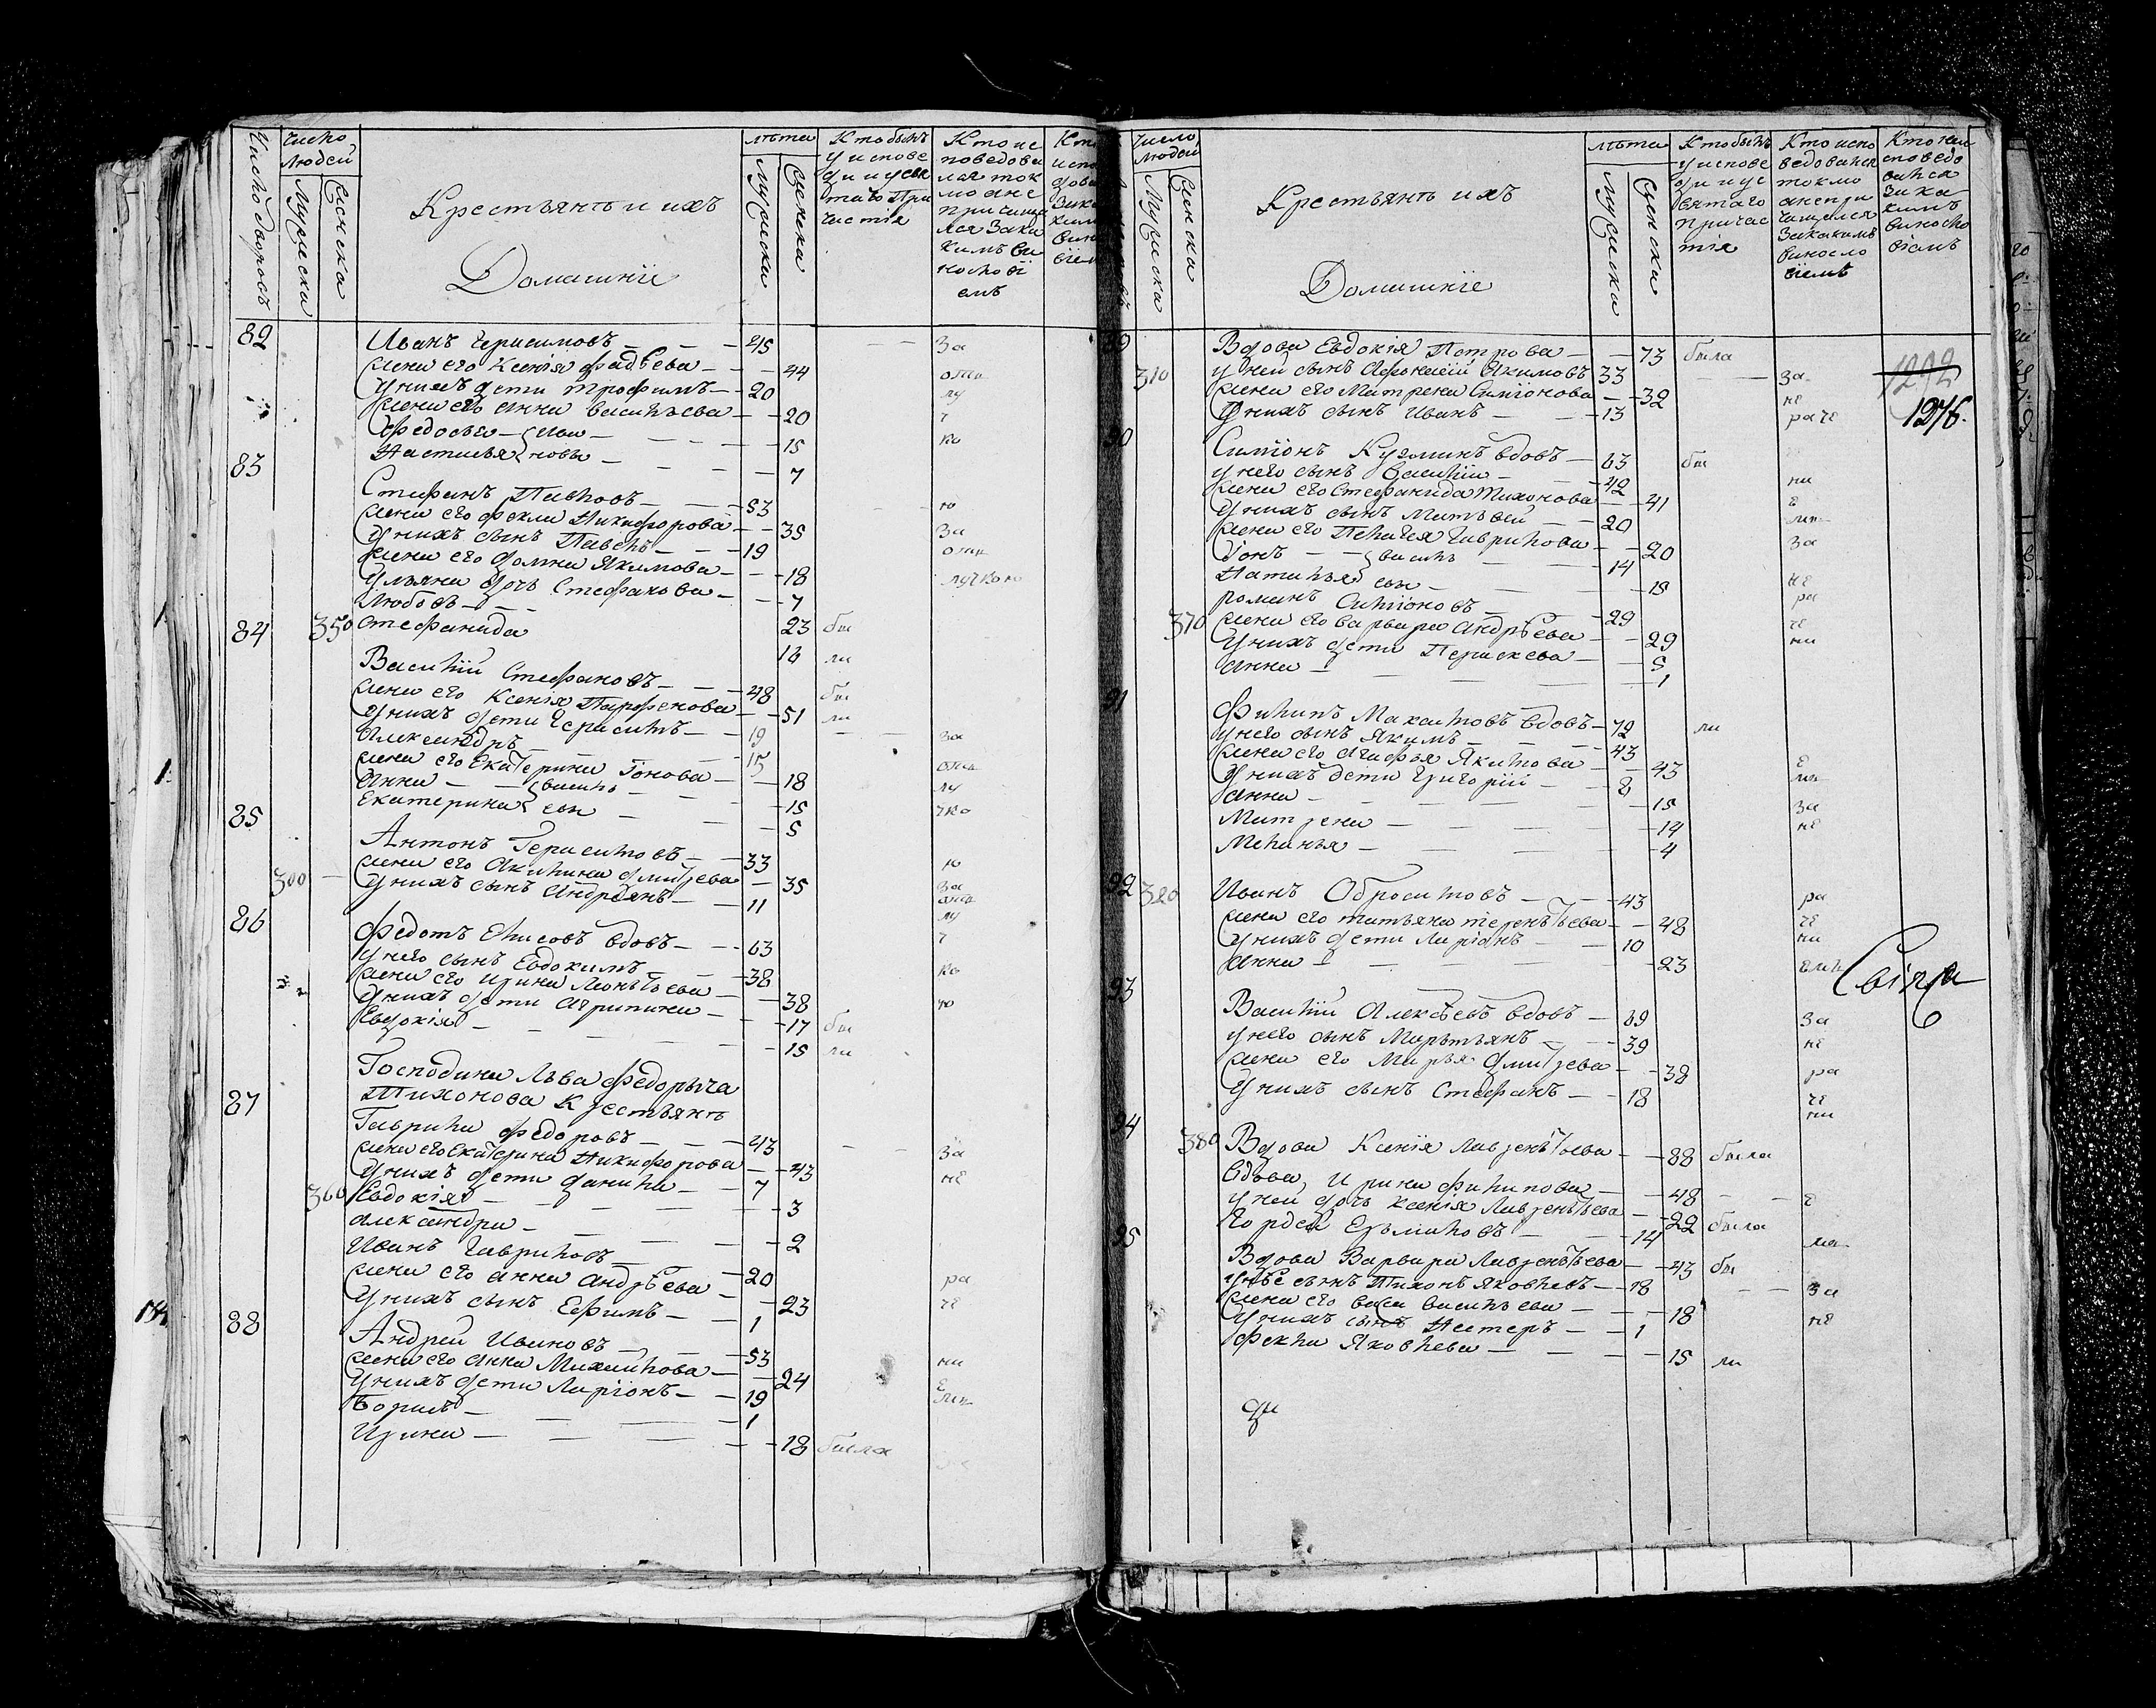 Число дворовъ
Число людей
Мужеска
Женска
Крестьянѣ и ихъ
Домашніе
лѣта
Мужеска
Женска
Кто былъ у исповеди и у свя таго При частія
Кто ис поведова лся ток мо а не причаща лся за ка кимъ ви нослові емъ
82 Иванъ Герасимовъ 45 за
жена его Ксенія Фадѣева 44 отл
у нихъ дети Трофимъ 20 лу
жена его Анна Васильева 20 ч
Федосья Ива 15 ко
Настасья новы 7
83
Стефанъ Павловъ 53 ю
жена его Фекла Никифорова 35 за
у нихъ сынъ Павелъ 19 отл
жена его Домна Якимова 18 лучкою
Ульяна дочь Стефанова 7
Любовь
84 350 Стефанида 23 бы
16 ли
Василій Стефановъ 48 бы
жена его Ксенія Парфенова 51 ли
у нихъ дети Герасимъ 19 за
Александръ 15
жена его Екатерина Іонова 18 отл
Анна Василь 15 лу
Екатерина евы 5 чко
85
Антонъ Герасимовъ 33 ю
жена его Акилина Дмитрева 35 за
300 у нихъ сынъ Андреянъ 11 отл
86 лу
Федотъ Елисовъ вдовъ 63 ч
у него сынъ Евдокимъ 38
жена его Ирина Леонтьева 38 ко
у нихъ дети Агрипина 17 бы ю
Евдокія 15 ли
Господина Льва Федорыча
Тихонова Крестьянѣ
87
Гаврила Федоровъ 43 за
жена его Екатерина Никифорова 43
у нихъ дети Данила 7 не
360 Евдокія 3
Александра 2
Иванъ Гавриловъ 20
жена его Анна Андрѣева 23 ра
у нихъ сынъ Ефимъ 1 че
88
Андрей Ивановъ 53
жена его Анна Михайлова 24 ни
у нихъ дети Ларіонъ 19 е
Борисъ 1 мъ
Ирина 18 была
Число людей
Мужеска
Женска
Крестьянѣ ихъ
Домашніе
лѣта
Мужеска
Женска
Кто былъ у исповеди и у святаго причас тія
Кто испо ведовался токмо а не при чащался за какимъ винословіемъ
Кто не исповедо вался за ка кимъ виносло віемъ
Вдова Евдокія Петрова 73 была
310 у ней сынъ Афонасій Якимовъ 33 за
жена его Матрена Симіонова 32 не
у нихъ сынъ Иванъ 13 раче
1292
1276.
90
Симіонъ Кузминъ вдовъ 63 бы
у него сынъ Василій 42 ни
жена его Стефанида Тихонова 41 е
у нихъ сынъ Матвей 20 мъ
жена его Пелагея Гаврилова 20 за
Іонъ Василь 14
Наталья евы 15 не
Романъ Симіоновъ 29 ра
370 жена его Варвара Андрѣева 29 че
у нихъ дети Параскева 5 ни
Анна 1
91
Филипъ Максимовъ вдовъ 72 ли
у него сынъ Якимъ 43
жена его Агафья Якимова 43 е
у нихъ дети Григорій 8 мъ
Анна 15 за
Матрена 14 не
Меланья 4
92 320 Иванъ Обросимовъ 43 ра
жена его Татьяна Терентьева 48 че
у нихъ дети Ларіонъ 10 ни
Анна 23 емъ
93
Василій Алексѣевъ вдовъ 69 за
у него сынъ Мартьянъ 39 не
жена его Марья Дмитрева 38 ра
у нихъ сынъ Стефанъ 18 че
94 ни
380 Вдова Ксенія Лаврентьева 88 была
вдова Ирина Филипова 48 е
у ней дочь Ксенія Лаврентьева 22 была
Гордей Ермиловъ 14 мъ
95
Вдова Варвара Лаврентьева 43 бы
у нее сынъ Тихонъ Яковлевъ 18 за
жена его Васса Васильева 18 не
у нихъ сынъ Нестеръ 1
Фекла Яковлева 15 ли